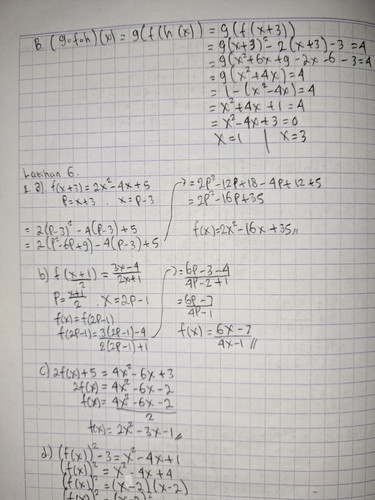 B. (gofoh)(x) = g(f(h(x)) = g(f(x+3))
= g(x+3)² - 2(x+3) - 3 = 4
= g(x²+6x+9 - 2x - 6 - 3 = 4
= g(x²+4x) = 4
= 1 - (x²-4x) = 4
= x²+4x+1 = 4
= x²-4x+3 = 0
x=1 | x=3
Latihan 6.
1. a) f(x+3) = 2x²-4x+5
P=x+3 . x=P-3
= 2(P-3)² - 4(P-3)+5
= 2(P²-6P+9) - 4(P-3)+5
= 2P²-12P+18-4P+12+5
= 2P²-16P+35
f(x)=2x²-16x+35
b) f(x+1/2) = 3x-4/2x+1
P = x+1/2 x=2P-1
f(x) = f(2P-1)
f(2P-1) = 3(2P-1)-4/2(2P-1)+1
= 6P-3-4/4P-2+1
= 6P-7/4P-1
f(x) = 6x-7/4x-1
c) 2f(x)+5 = 4x²-6x+3
2f(x) = 4x²-6x-2
f(x) = 4x²-6x-2/2
f(x) = 2x²-3x-1
d) (f(x))²-3 = x²-4x+1
(f(x))² = x²-4x+4
(f(x))² = (x-2)(x-2)